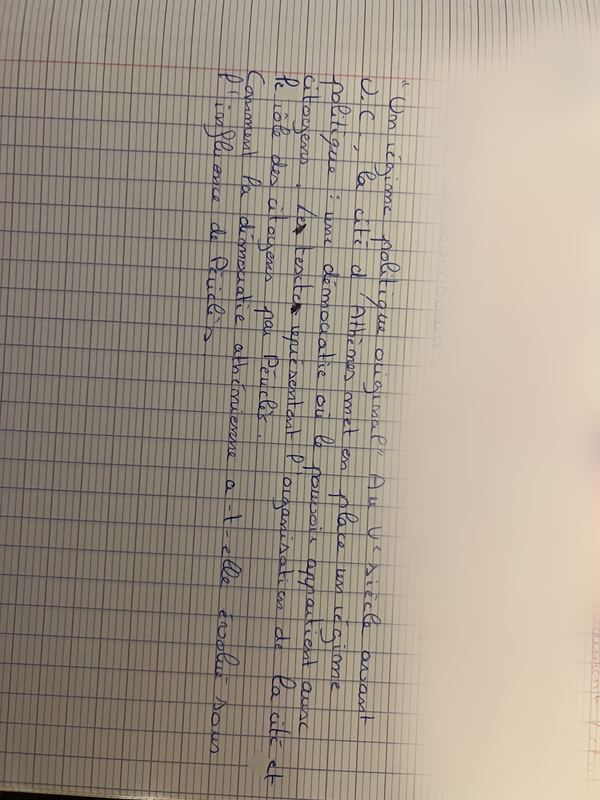 "Un régime politique original" Au Ve siècle avant
J.C., la cité d'Athènes met en place un régime
politique : une démocratie où le pouvoir appartient aux
citoyens. Les textes représentent l'organisation de la cité et
le rôle des citoyens par Périclès.
Comment la démocratie athénienne a-t-elle évolué sous
l'influence de Périclès.